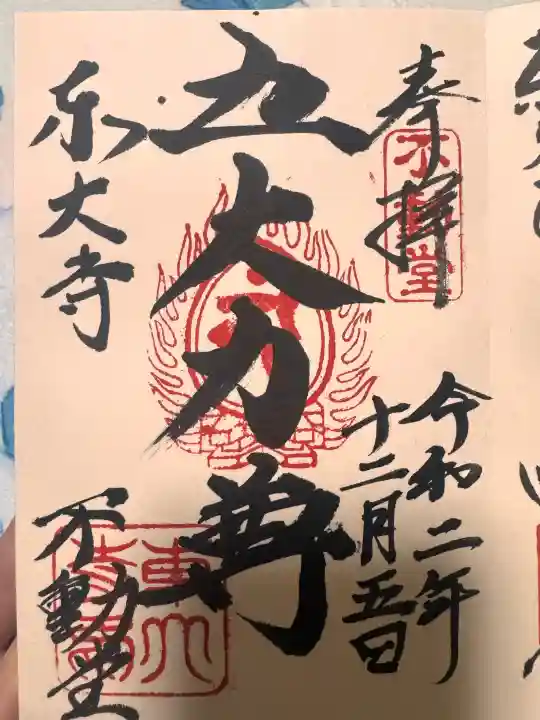 奉拝
不動堂
令和二年
十二月五日
五大力尊
東大寺
不動堂